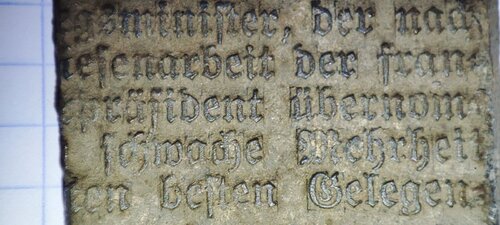 gsminister, der nach
iesenarbeit der franz
präsident übernom
schwache Mehrheit
ten besten Gelegen